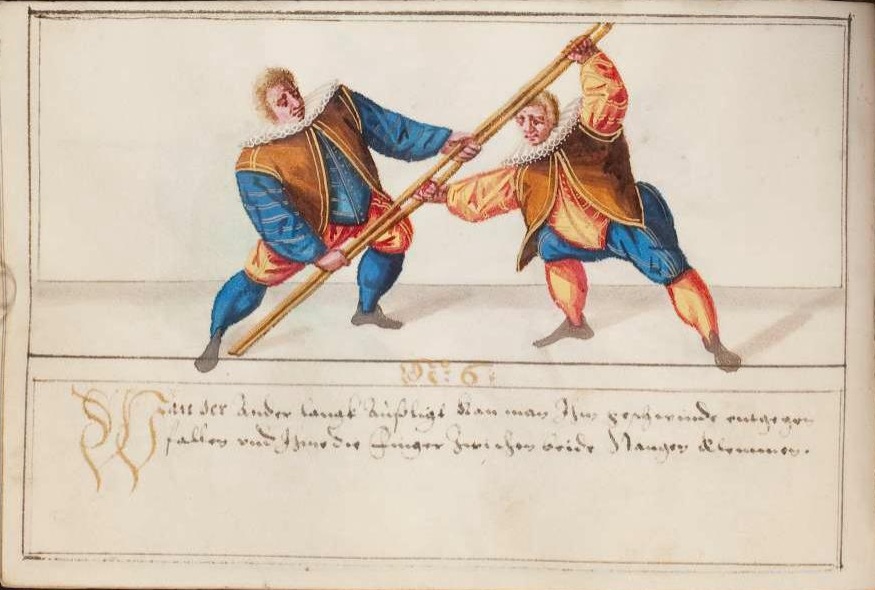 No: 6:
Wan der ander langk außligt kan man Ihm geschwinde entgegen
fallen vnd Ihme die Finger zwischen beide Stangen klemmen.